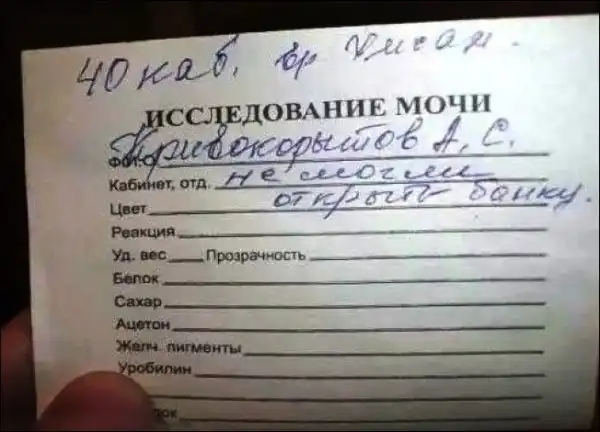 40 каб. вр Хисам.
ИССЛЕДОВАНИЕ МОЧИ
Ф.И.О. Кривокорытов А. С.
Кабинет, отд. не могли
Цвет открыть банку.
Реакция
Уд. вес Прозрачность
Белок
Сахар
Ацетон
Желч. пигменты
Уробилин